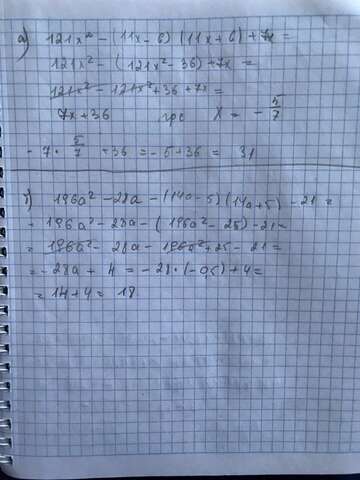 а) 121x² - (11x - 6) (11x + 6) + 7x =
121x² - (121x² - 36) + 7x =
121x² - 121x² + 36 + 7x =
7x + 36 при x = - 5/7
- 7 · 5/7 + 36 = - 5 + 36 = 31
б) 196a² - 28a - (14a - 5) (14a + 5) - 21 =
= 196a² - 28a - (196a² - 25) - 21 =
= 196a² - 28a - 196a² + 25 - 21 =
= - 28a + 4 = - 28 · (- 0,5) + 4 =
= 14 + 4 = 18